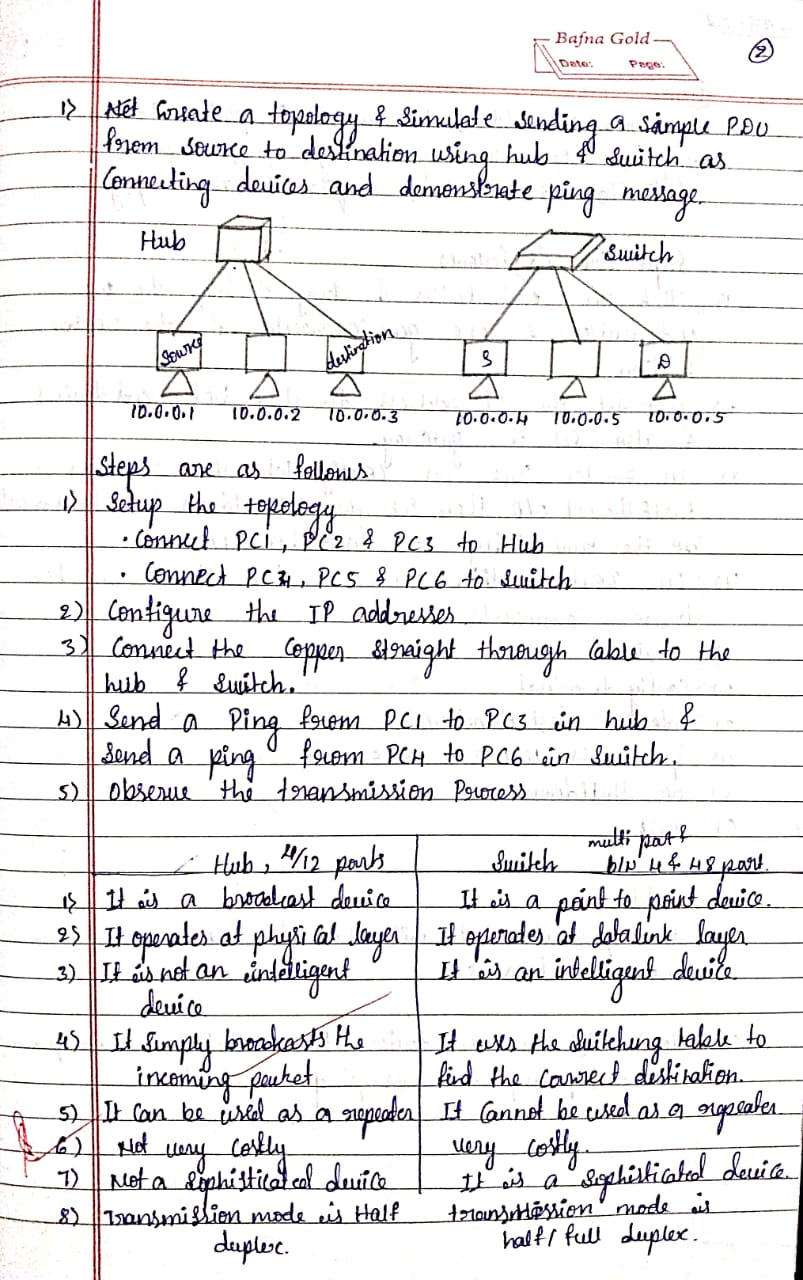 Bafna Gold
Date: Page:
2
1) Create a topology & simulate sending a sample PDU
from source to destination using hub & switch as
Connecting devices and demonstrate ping message.
Hub
Switch
Source destination S D
10.0.0.1 10.0.0.2 10.0.0.3 10.0.0.4 10.0.0.5 10.0.0.5
Steps are as follows
1) Setup the topology
• Connect PC1, PC2 & PC3 to Hub
• Connect PC4, PC5 & PC6 to switch
2) Configure the IP addresses
3) Connect the Copper straight through Cable to the
hub & switch.
4) Send a Ping from PC1 to PC3 in hub &
Send a ping from PC4 to PC6 in switch.
5) Observe the transmission Process
Hub, 4/12 ports Switch multi port &
b/w 4 & 48 port.
1) It is a broadcast device It is a point to point device.
2) It operates at physical layer It operates at datalink layer
3) It is not an intelligent It is an intelligent device.
device
4) It simply broadcasts the It uses the switching table to
incoming packet find the correct destination.
5) It can be used as a repeater It cannot be used as a repeater
6) Not very costly very costly.
7) Not a sophisticated device It is a sophisticated device.
8) Transmission mode is Half transmission mode is
duplex. half/full duplex.